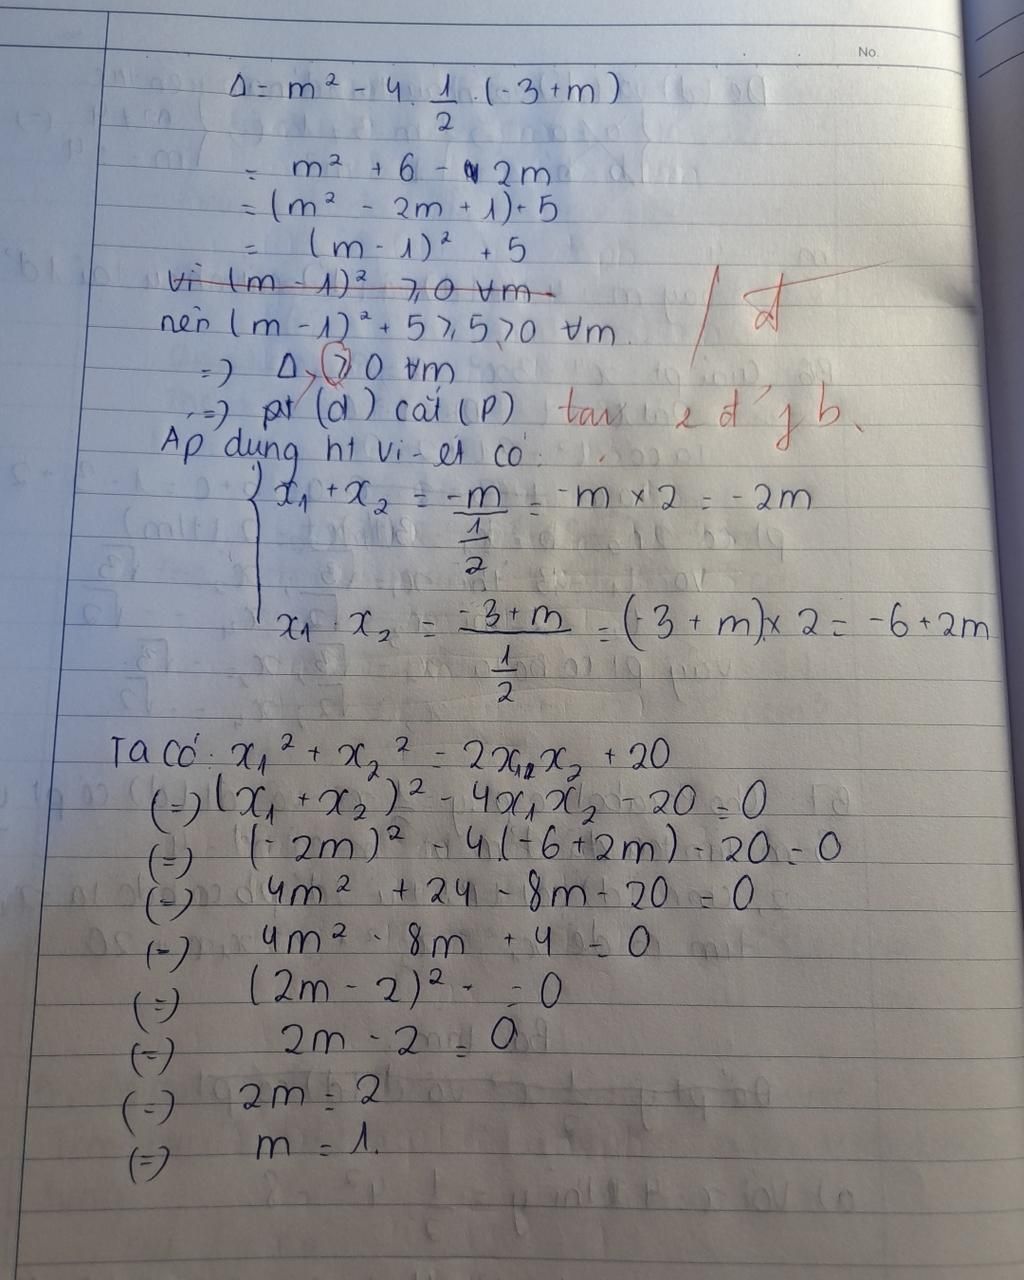 No.
Δ = m² - 4. 1/2 .(-3+m)
= m² + 6 - 2m
= (m² - 2m + 1)+ 5
= (m - 1)² + 5
vì (m - 1)² ⩾ 0 ∀m
nên (m - 1)² + 5 ⩾ 5 > 0 ∀m.
=> Δ > 0 ∀m
=> pt (d) cắt (P) tại 2 đ' pb.
Áp dụng ht vi-ét có:
x₁ + x₂ = -m/(1/2) = -m × 2 = -2m
x₁ . x₂ = (-3 + m)/(1/2) = (-3 + m) × 2 = -6 + 2m
Ta có: x₁² + x₂² = 2x₁x₂ + 20
(=) (x₁ + x₂)² - 4x₁x₂ - 20 = 0
(=) (-2m)² - 4(-6+2m) - 20 = 0
(=) 4m² + 24 - 8m - 20 = 0
(=) 4m² - 8m + 4 = 0
(=) (2m - 2)² = 0
(=) 2m - 2 = 0
(=) 2m = 2
(=) m = 1.